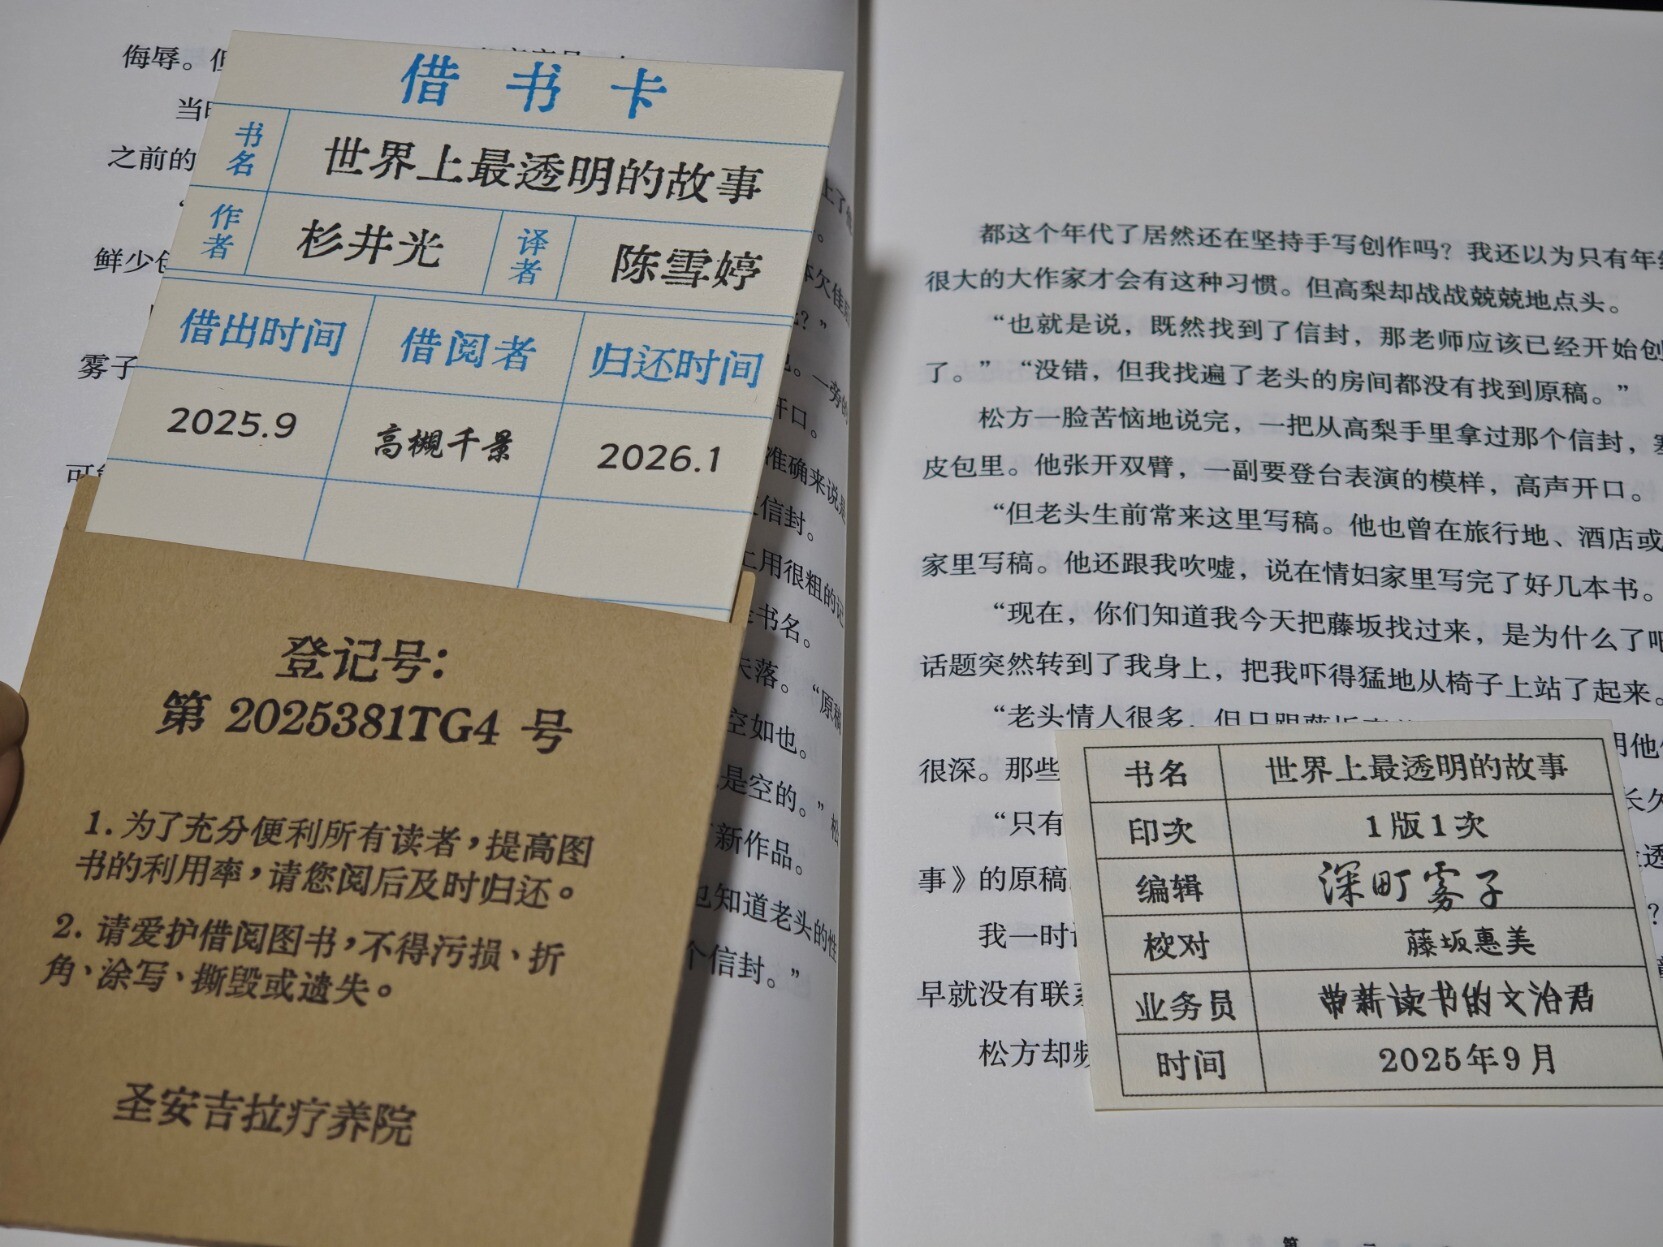 借书卡
书名 世界上最透明的故事
作者 杉井光 译者 陈雪婷
借出时间 借阅者 归还时间
2025.9 高槻千景 2026.1
登记号：
第 2025381TG4 号
1.为了充分便利所有读者，提高图
书的利用率，请您阅后及时归还。
2.请爱护借阅图书，不得污损、折
角、涂写、撕毁或遗失。
圣安吉拉疗养院
侮辱。但
当时
之前的
鲜少
雾子
开口。
准确来说是
信封。
上用很粗的记
书名。
失落。“原稿
空如也。
是空的。”松
新作品。
也知道老头的性
个信封。”
都这个年代了居然还在坚持手写创作吗？我还以为只有年纪
很大的大作家才会有这种习惯。但高梨却战战兢兢地点头。
“也就是说，既然找到了信封，那老师应该已经开始创
了。”“没错，但我找遍了老头的房间都没有找到原稿。”
松方一脸苦恼地说完，一把从高梨手里拿过那个信封，塞
皮包里。他张开双臂，一副要登台表演的模样，高声开口。
“但老头生前常来这里写稿。他也曾在旅行地、酒店或
家里写稿。他还跟我吹嘘，说在情妇家里写完了好几本书。
“现在，你们知道我今天把藤坂找过来，是为什么了吧
话题突然转到了我身上，把我吓得猛地从椅子上站了起来。
“老头情人很多，但只跟藤坂
很深。那些
“只有
事》的原稿
我一时
早就没有联系
松方却频
书名 世界上最透明的故事
印次 1版1次
编辑 深町雾子
校对 藤坂惠美
业务员 带薪读书的文治君
时间 2025年9月